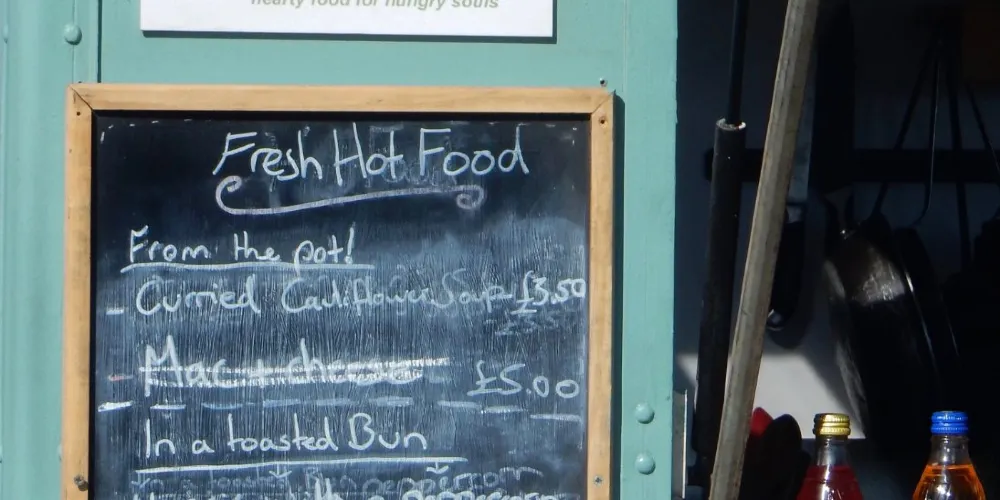 hearty food for hungry souls
Fresh Hot Food
From the pot!
- Curried Cauliflower Soup £3.50
- Mac + cheese £5.00
In a toasted Bun